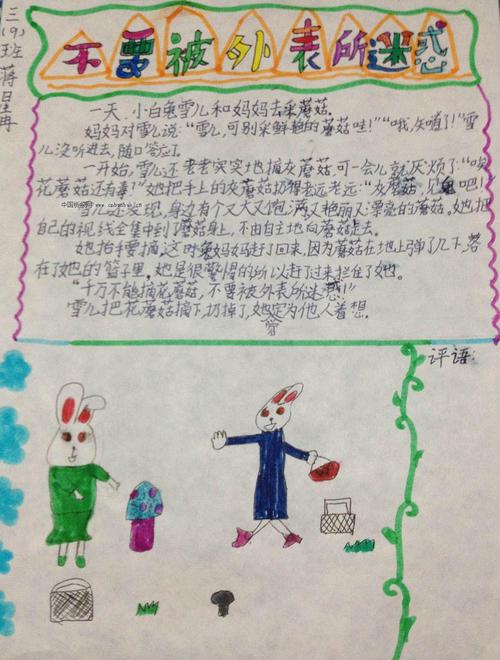 三(9)班 蒋星冉
不要被外表所迷惑
一天,小白兔雪儿和妈妈去采蘑菇。
妈妈对雪儿说:“雪儿,可别采鲜艳的蘑菇哇!”“哦,知道了!”雪
儿没听进去,随口答应了。
一开始,雪儿还老老实实地摘灰蘑菇,可一会儿就厌烦了:“
花蘑菇还有毒?”她把手上的灰蘑菇扔得老远老远:“灰蘑菇,见鬼吧!”
雪儿还发现,身边有个又大又饱满又艳丽又漂亮的蘑菇。她把
自己的视线全集中到了蘑菇身上,不由自主地向蘑菇走去。
她抬手要摘,这时兔妈妈赶了回来,因为蘑菇在地上弹了几下,落
在了她的篮子里。她是很警惕的所以赶了过来拦住了她。
“千万不能摘花蘑菇,不要被外表所迷惑!”
雪儿把花蘑菇摘下,扔掉了,她是为他人着想。
评语: